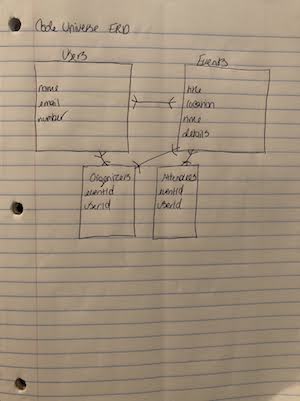 Code Universe ERD
Users
Events
name
email
number
title
location
time
details
Organizers
eventId
userId
Attendees
eventId
userId